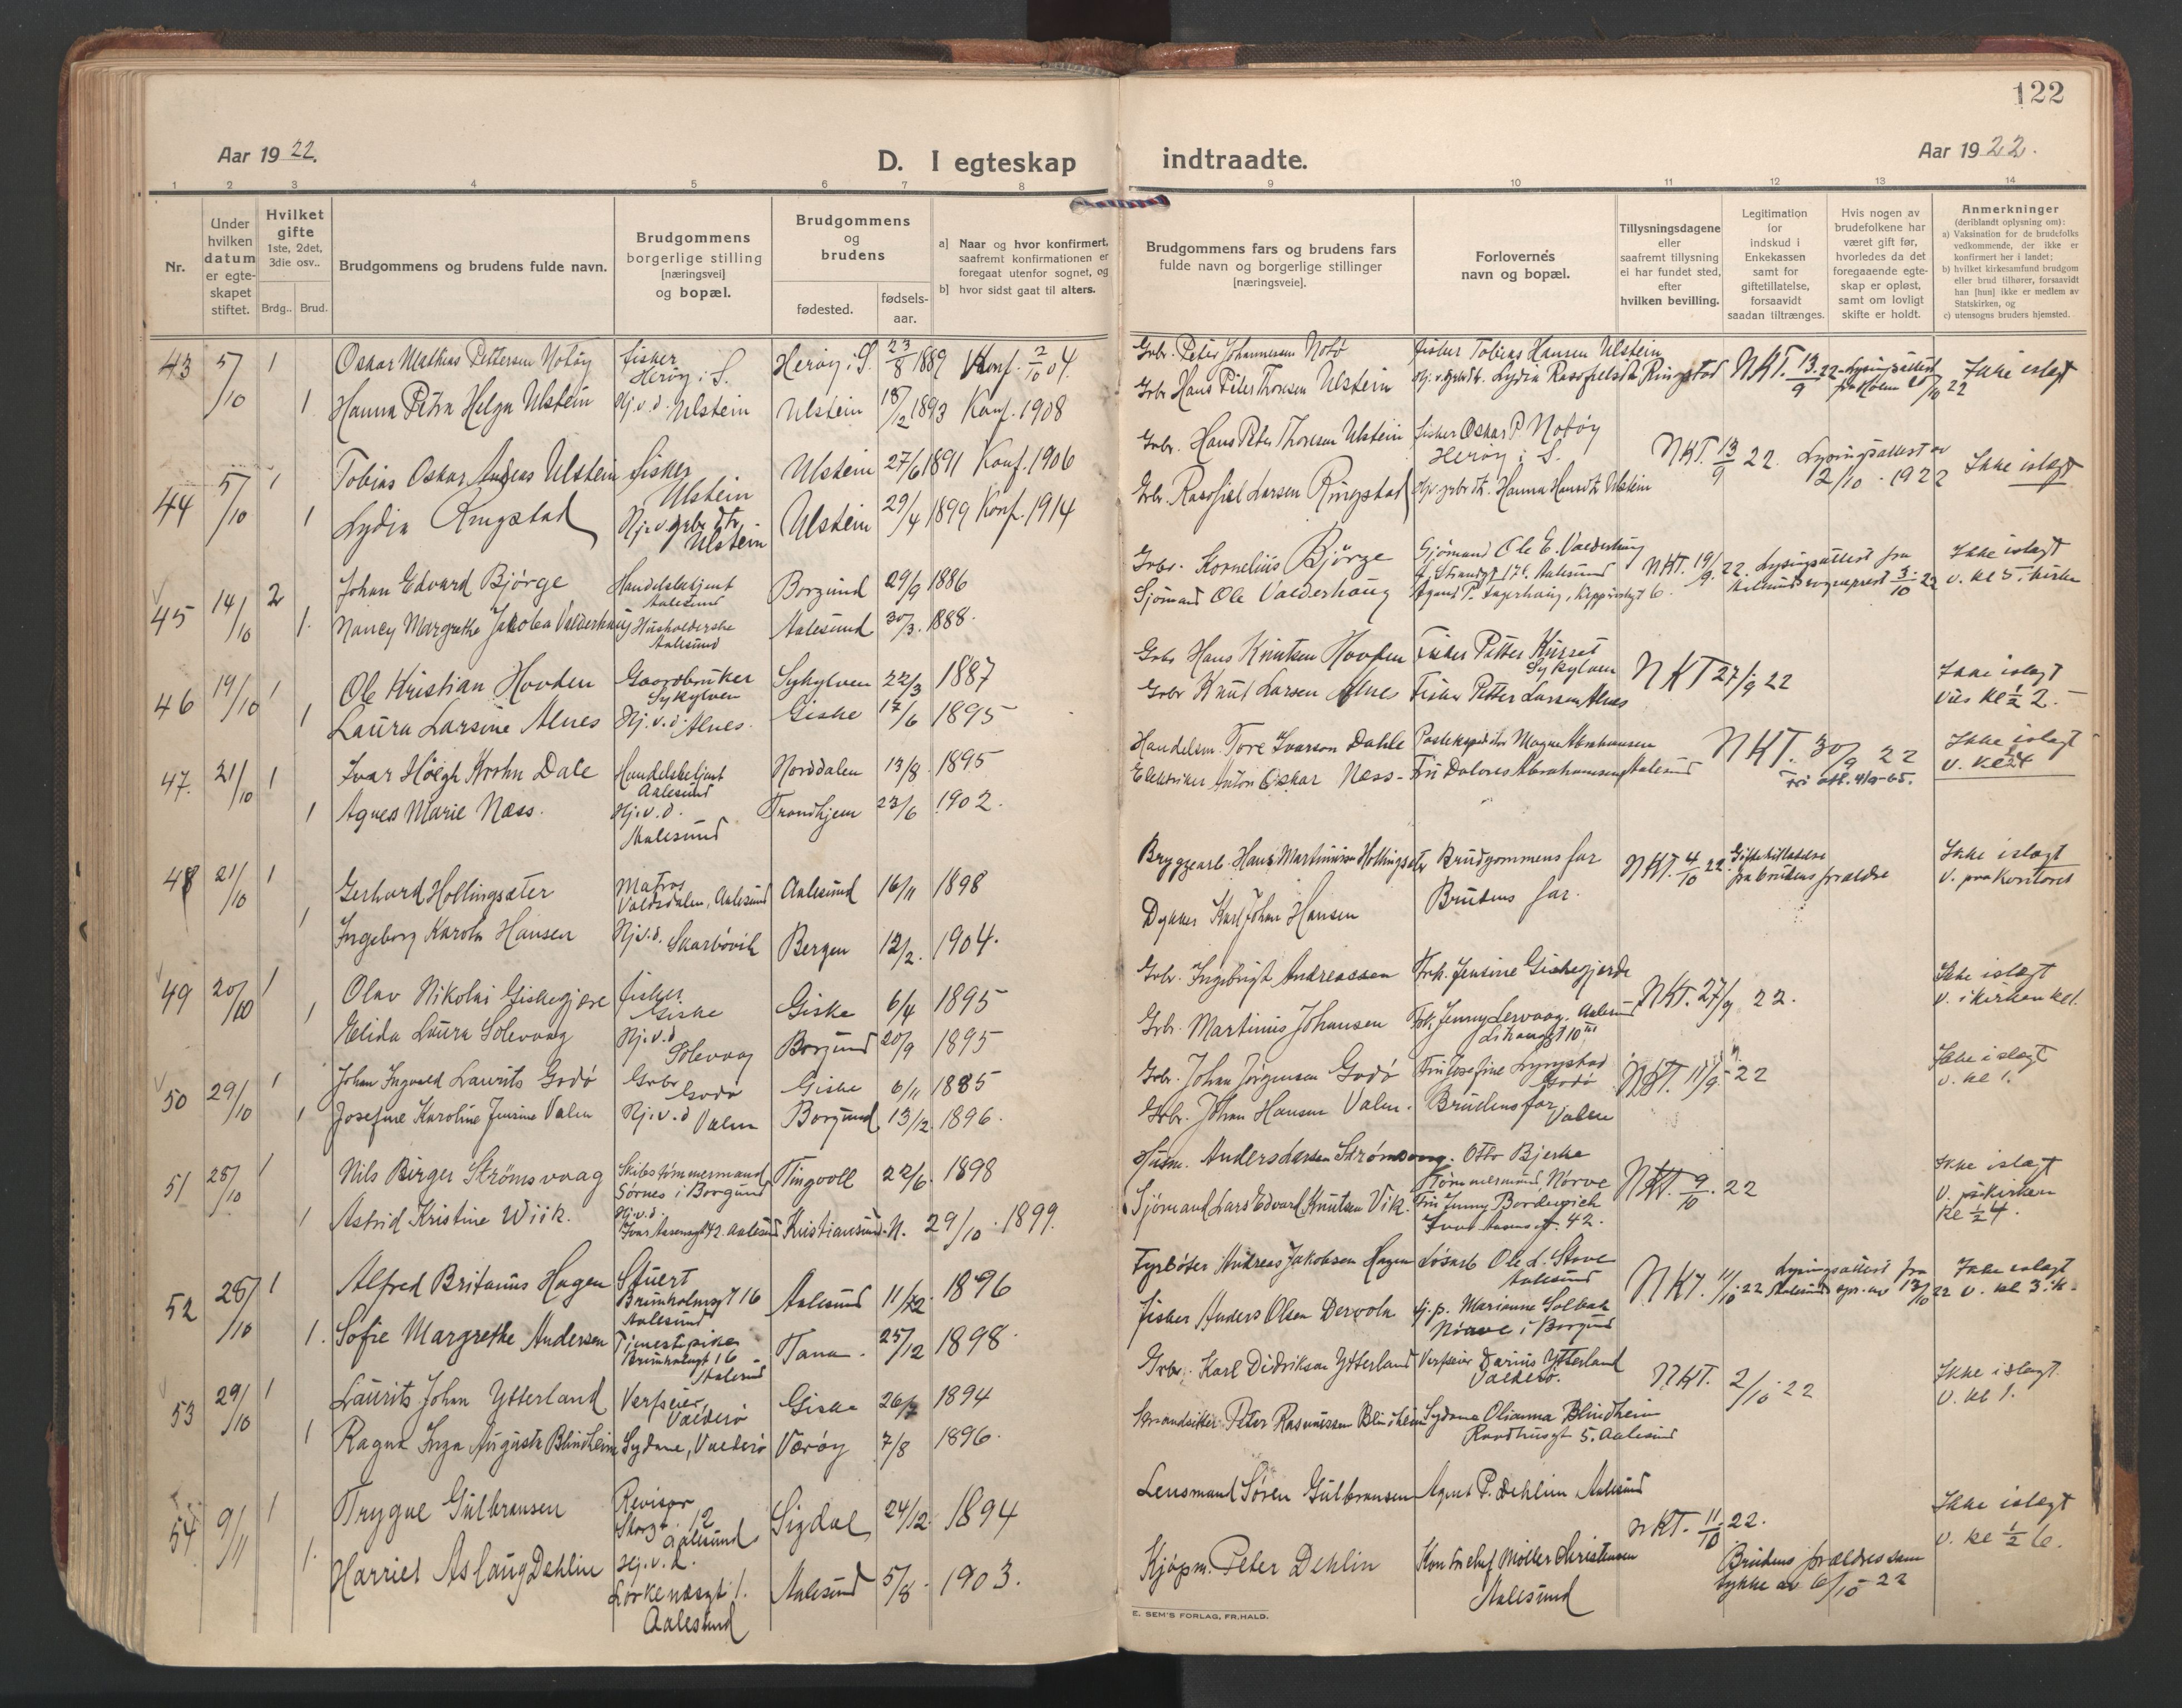 122
Aar 19 22.
D. I egteskap
indtraadte.
Aar 19 22.
1 2 3 4 5 6 7 8 9 10 11 12 13 14
Nr.
Under hvilken datum er egteskapet stiftet.
Hvilket gifte 1ste, 2det, 3die osv..
Brdg.. Brud.
Brudgommens og brudens fulde navn.
Brudgommens borgerlige stilling [næringsvei] og bopæl.
Brudgommens og brudens
fødested.
fødsels-aar.
a] Naar og hvor konfirmert, saafremt konfirmationen er foregaat utenfor sognet, og
b] hvor sidst gaat til alters.
Brudgommens fars og brudens fars fulde navn og borgerlige stillinger [næringsveie].
Forlovernes navn og bopæl.
Tillysningsdagene eller saafremt tillysning ei har fundet sted, efter hvilken bevilling.
Legitimation for indskud i Enkekassen samt for giftetillatelse, forsaavidt saadan tiltrænges.
Hvis nogen av brudefolkene har været gift før, hvorledes da det foregaaende egteskap er opløst, samt om lovligt skifte er holdt.
Anmerkninger (deriblandt oplysning om):
a) Vaksination for de brudefolks vedkommende, der ikke er konfirmert her i landet;
b) hvilket kirkesamfund brudgom eller brud tilhører, forsaavidt han [hun] ikke er medlem av Statskirken, og
c) utensogns bruders hjemsted.
43 5/10 1 Oskar Mathias Pettersen Notøy fisker Herøy i S. Herøy i S. 23/8 1889 Konf. 2/10 04. Grbr. Peter Johannesen Notø fisker Tobias Hansen Ulstein NKT. 13/9 22 Lysingsattest fra Holm 20/10 22 Ikke islagt
1 Hanna Petra Helga Ulstein Hj.v.d. Ulstein Ulstein 18/12 1893 Konf. 1908 Grbr Hans Peter Thoresen Ulstein Lydia Rasofielsdtr Ringstad
44 5/10 1 Tobias Oskar Andreas Ulstein fisker Ulstein Ulstein 27/6 1891 Konf. 1906 Grbr. Hans Peter Thoresen Ulstein fisker Oskar P. Notøy Herøy i S. NKT. 13/9 22. Lysingsattest av 12/10 - 1922 Ikke islagt
1 Lydia Ringstad Hj.v. grbr dtr. Ulstein Ulstein 29/4 1899 Konf. 1914 Grbr. Rasofiel Larsen Ringstad Hj.v. grbr dt. Hanna Hansdtr Ulstein
45 14/10 2 Johan Edvard Bjørge Handelsbetjent Aalesund Borgund 29/9 1886 Grbr. Kornelius Bjørge Sjømand Ole E. Valderhaug Strandgt 17 Aalesund NKT. 19/9. 22. Lysingsattest fra Aalesunds sogneprest 3/10 22 Ikke islagt v. kl 5. kirke
1. Nancy Margrethe Jakoba Valderhaug Husholderske Aalesund Aalesund 30/3. 1888. Sjømand Ole Valderhaug
46 19/10 1 Ole Kristian Hovden Gaardbruker Sykylven Sykylven 22/3 1887 Grbr Hans Knutsen Hovden Fisker Petter Kurset Sykylven NKT 27/9 22 Ikke islagt vies kl 1/2 2.
1 Laura Larsine Alnes Hj.v.d. Alnes. Giske 17/6 1895 Grbr Knut Larsen Alnes Fisker Petter Larsen Alnes
47. 21/10 1 Ivar Høegh Krohn Dale Handelsbetjent Aalesund Norddalen 13/8. 1895 Handelsm. Tore Ivarson Dahle Postekspeditør Magne Abrahamsen NKT. 30/9 22 Ikke islagt v. kl 4
1 Agnes Marie Næss. Hj.v.d. Aalesund Trondhjem 23/6 1902. Elektriker Anton Oskar Næss - Fru Dolores Abrahamsen, Aalesund
48 21/10 1 Gerhard Hollingsæter Matros Volsdalen, Aalesund Aalesund 16/11 1898 Bryggearb. Hans Martinusen Hollingsæter Brudgommens far NKT. 4/10 22. Giftetillatelse fra brudens forældre Ikke islagt v. paa kontoret
1 Ingeborg Karola Hansen Hj.v.d. Skarbøvik Bergen 12/2. 1904. Dykker Karl Johan Hansen Brudens far.
49 20/10 1 Olav Nikolai Giskegjære fisker. Giske Giske 6/4 1895 Grbr. Ingebrigt Andreassen Frk. Jensine Giskegjerde NKT. 27/9 22. Ikke islagt v. i kirken kl 1.
1 Elida Laura Solevaag Hj.v.d Solevaag Borgund 20/9 1895 Grbr. Martinus Johansen Frk. Jenny Lervaag. Aalesund
50 29/10 1 Johan Ingvald Laurits Godø Grbr Godø Giske 6/11 1885 Grbr. Johan Jørgensen Godø Fru Josefine Lyngstad Godø NKT. 11/9 22 Ikke islagt v. kl 1.
1 Josefine Karoline Jensine Valen Hj.v.d Valen Borgund 13/12 1896. Grbr. Johan Hansen Valen. Brudens far Valen
51 25/10 1 Nils Birger Strømsvaag Skibstømmermand Sørnes i Borgund Tingvoll 22/6. 1898 Husm. Anders Larsen Strømsvaag. Otto Bjerke Tømmermand, Nørve NKT. 9/10. 22 Ikke islagt v. på kirken kl 1/2 4.
1 Astrid Kristine Wiik. Hj.v.d. Ivar Aasensgt 42. Aalesund Kristiansund N. 29/10. 1899. Sjømand Lars Edvard Knutsen Vik. Fru Jenny Bordevich Ivar Aasens gt. 42.
52 28/10 1 Alfred Britanus Hagen Stuert Brunholmgt 16 Aalesund Aalesund 11/12. 1896 Fyrbøter Andreas Jakobsen Hagen Løsarb Ole L. Stave Aalesund NKT 11/10 22 Lysingsattest fra Aalesunds spr. av 13/10 22 Ikke islagt v. kl 3.
1. Sofie Margrethe Andersen Tjenestepike Brunholmgt 16 Aalesund Tana. 25/12 1898. fisker Anders Olsen Dervola Marianne Solbak Nørve i Borgund
53 29/10 1 Laurits Johan Ytterland Verfseier, Valderø Giske 26/7 1894 Grbr. Karl Didriksen Ytterland Verfseier Darius Ytterland Valderø. NKT. 2/10 22 Ikke islagt. v. kl 1.
1 Ragna Inga Augusta Blindheim Sydame, Valderø Værøy 7/8 1896. Strandsitter Peter Rasmussen Blindheim Sydame Olianna Blindheim Raadhusgt 5. Aalesund
54 9/11 1 Trygve Gulbransen Revisor Skogt. 12 Aalesund Sigdal 24/12. 1894 Lensmand Søren Gulbransen Agent P. Dehlin Aalesund NKT. 11/10 22. Ikke islagt v. kl 1/2 6.
1. Harriet Aslaug Dehlin Hj.v.d. Lorkenæsgt 1. Aalesund Aalesund 5/8. 1903. Kjøpm. Peter Dehlin Kontorchef Møller Christensen Aalesund Brudens forældres samtykke av 6/10 22
E. SEM'S FORLAG, FR.HALD.